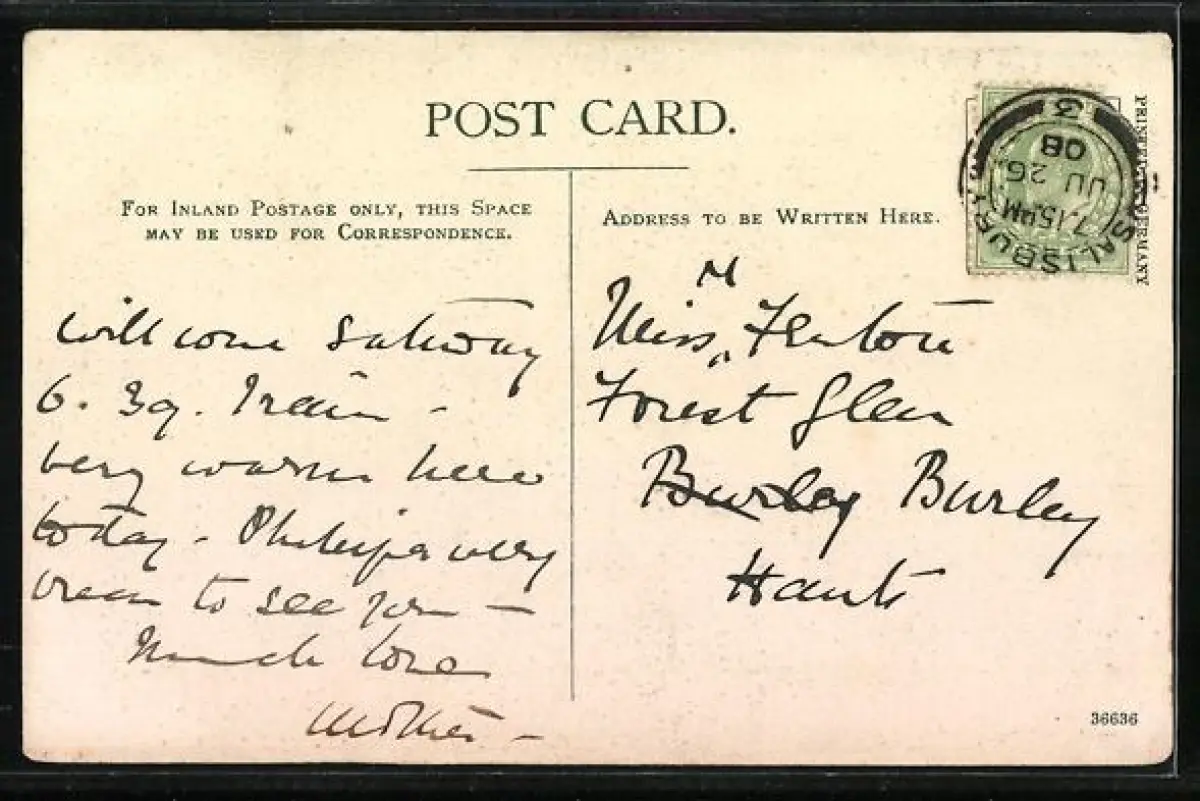 POST CARD.
FOR INLAND POSTAGE ONLY, THIS SPACE
MAY BE USED FOR CORRESPONDENCE.
ADDRESS TO BE WRITTEN HERE.
SALISBURY
7.15 PM
JU 26
08
3
PRINTED IN GERMANY
will come Saturday
6. 39. Train -
very warm here
today - very
to see you -
Much love
Mother -
M
Miss ^ Fenton
Forest Glen
Burley Burley
Hants
36636